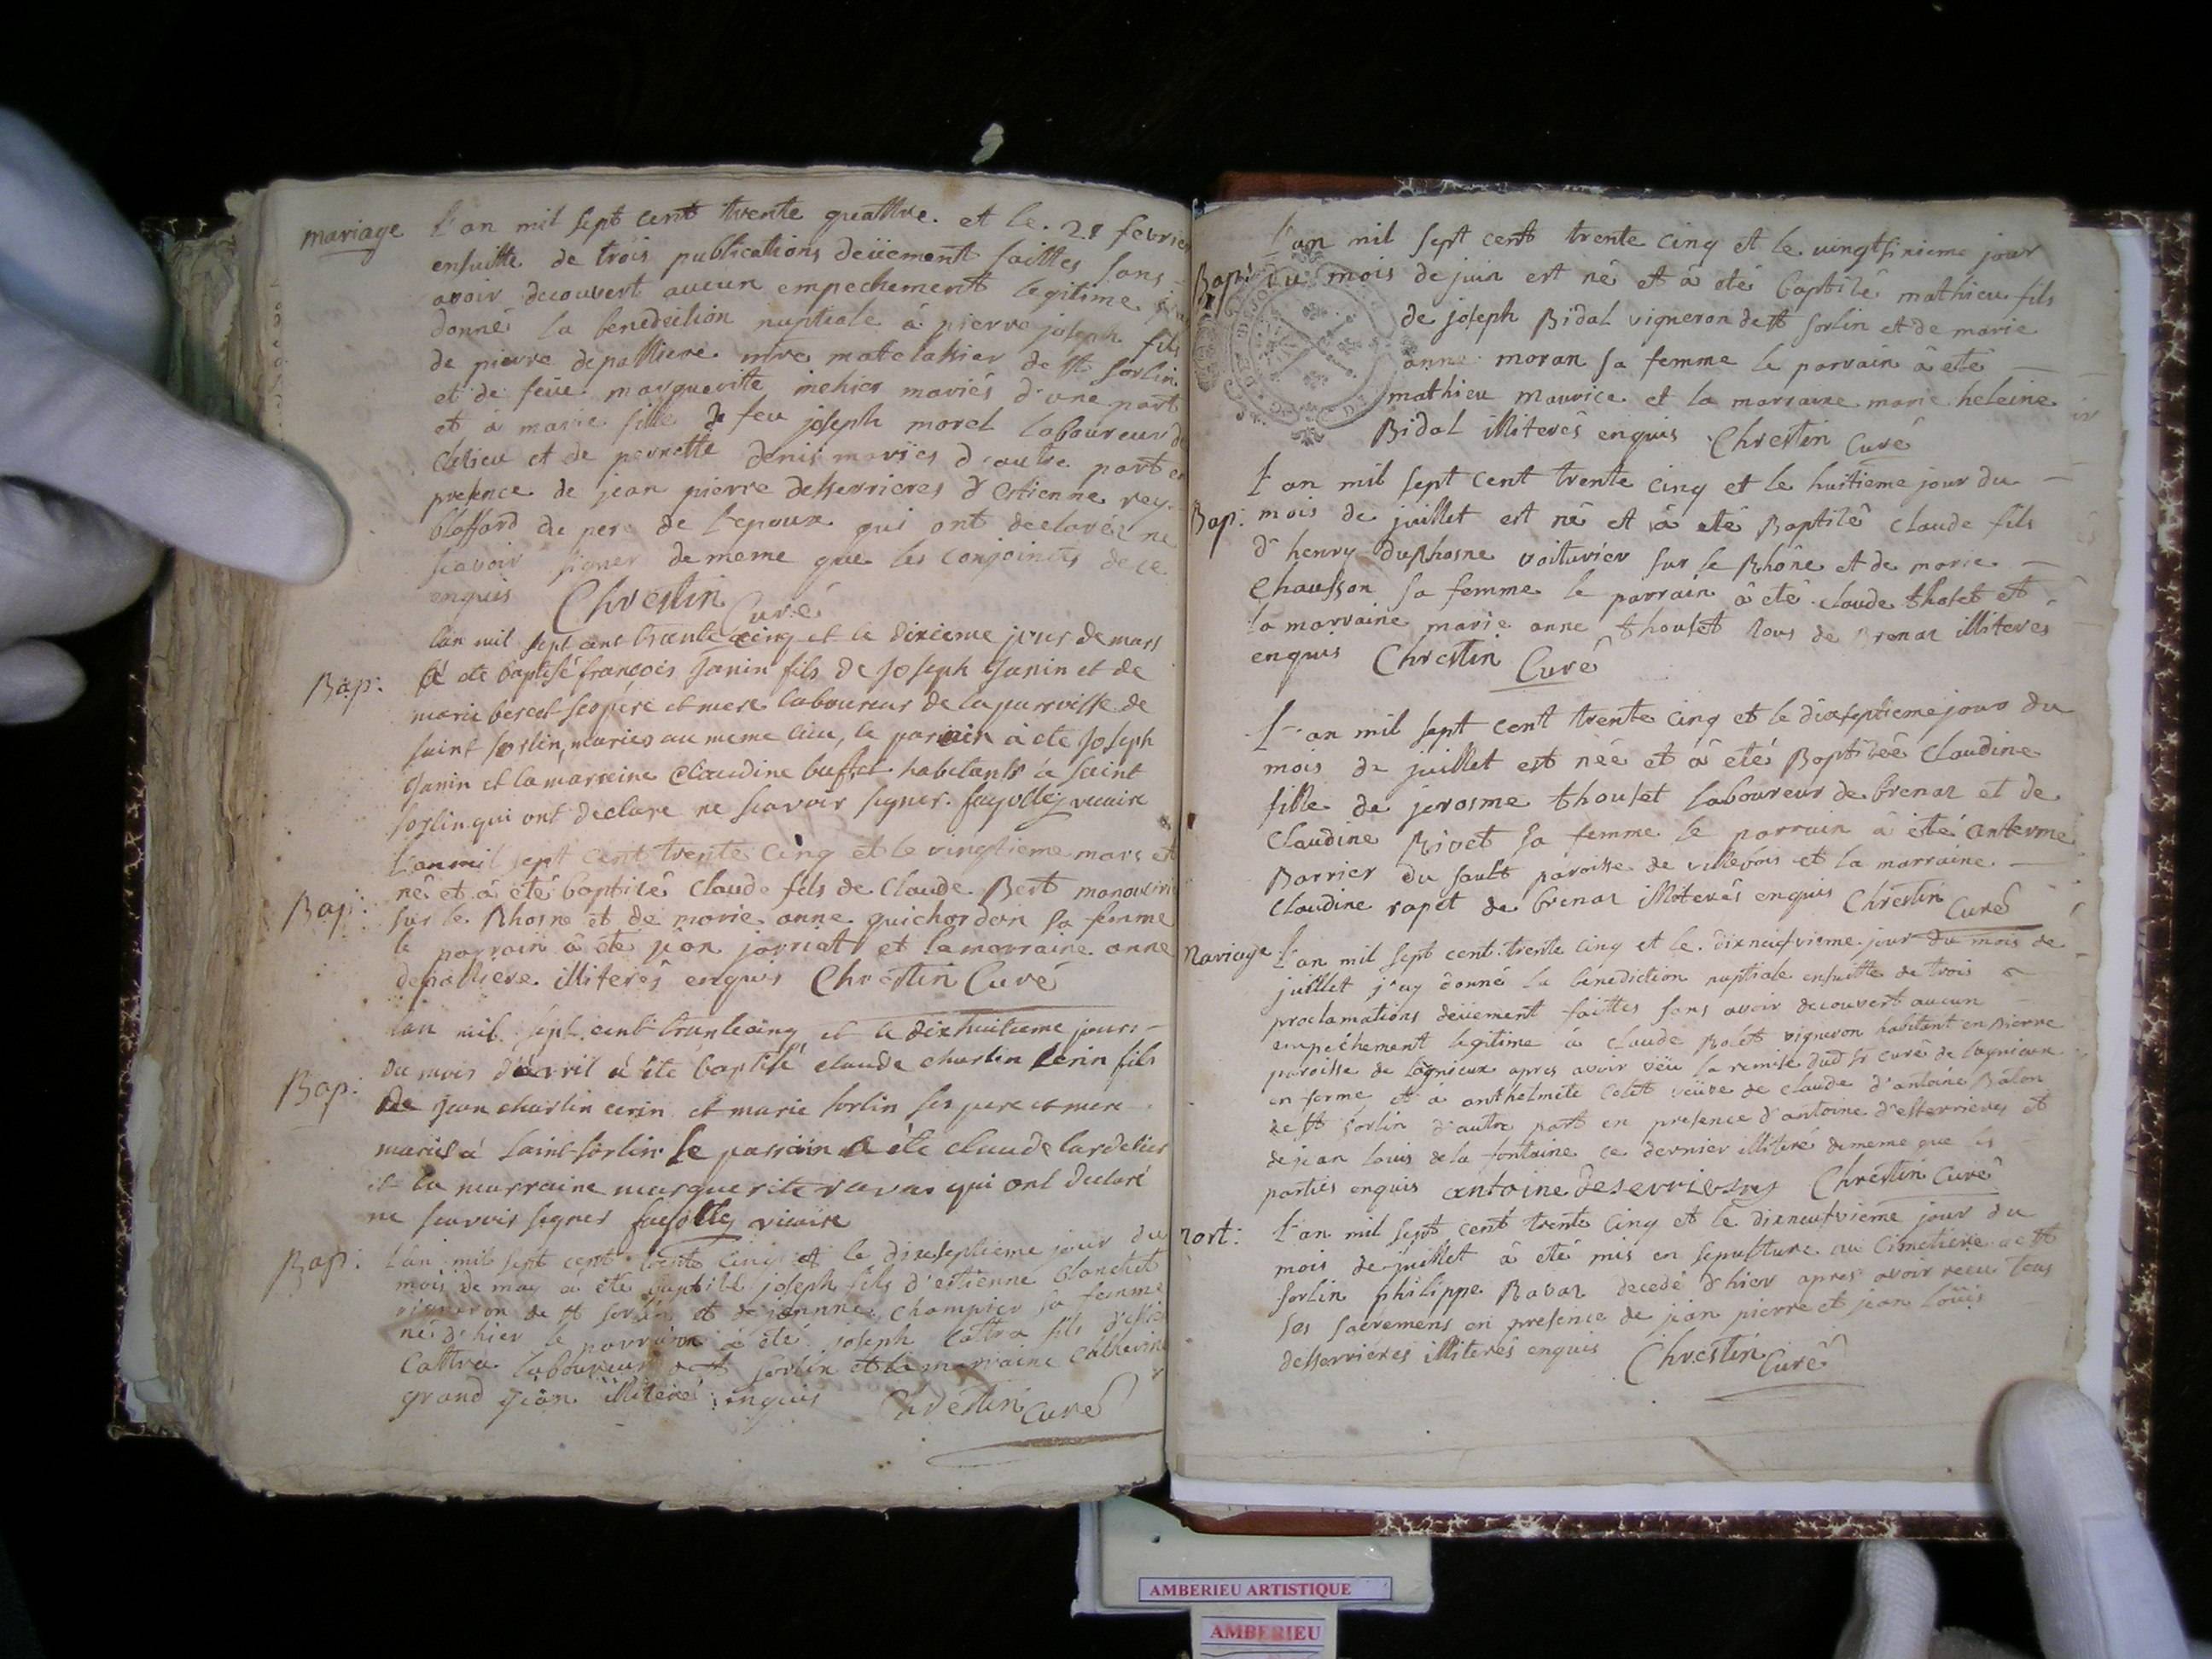 mariage L'an mil sept cent trente quattre. et le. 28 fevrier
ensuitte de trois publications deüement faittes sans
avoir decouvert aucun empechement legitime
donné la benediction nuptiale à pierre joseph fils
de pierre depalliere mtre matelassier de st sorlin
et de feüe margueritte mariés d'une part
et à marie fille de feu joseph morel laboureur de
et de perrette denis mariés d'autre part en
presence de jean pierre desserrieres d'estienne rey
du pere de l'epoux qui ont declarez ne
scavoir signer de meme que les conjoincts de ce
enquis Chrestin Curé
Bap: Lan mil sept cent trente cinq et le dixieme jour de mars
à ete baptisé françois Janin fils de Joseph Janin et de
marie ses père et mere laboureur de la parroisse de
saint sorlin, mariés au meme lieu, le parrain à ete Joseph
Janin et la marreine Claudine buffet habitants à saint
sorlin qui ont declare ne scavoir signer. fayolley vicaire
Bap: L'an mil sept cent trente cinq et le vingtieme mars est
né et à eté baptisé Claude fils de Claude Bert
sur le Rhosne et de marie anne guichardon sa femme
le parrain à eté jean jorriat et la marraine anne
depalliere illiterés enquis Chrestin Curé
Bap: Lan mil sept cent trante cinq et le dixhuitieme jours
du mois d'avril à ete baptisé claude charlin cerin fils
De jean charlin cerin et marie sorlin ses pere et mere
mariés à saint sorlin le parrain à ete claude lardelier
et la marraine marguerite ravas qui ont declaré
ne scavoir signer fayolley vicaire
Bap: L'an mil sept cent trente cinq et le dixseptieme jour du
mois de may à eté baptisé joseph fils d'estienne blanchet
vigneron de st sorlin et de jeannne Champier sa femme
né d'hier le parrain à eté joseph Cottra fils
Cottra laboureur st sorlin et la marraine Catherine
grand jean illiteré enquis Chrestin Curé
L'an mil sept cent trente cinq et le vingtsixieme jour
Bap: du mois de juin est né et à eté baptisé mathieu fils
de joseph Bidal vigneron de st sorlin et de marie
anne moran sa femme le parrain à eté
mathieu maurice et la marraine marie heleine
Bidal illiterés enquis Chrestin Curé
L'an mil sept cent trente cinq et le huitieme jour du
Bap: mois de juillet est né et à eté Baptisé claude fils
d'henry duRhosne voiturier sur le Rhône et de marie
Chausson sa femme le parrain à eté claude tholet et
la marraine marie anne thouset tous de Brenaz illiterés
enquis Chrestin Curé
L'an mil sept cent trente cinq et le dixseptieme jour du
mois de juillet est née et à eté Baptisée Claudine
fille de jerosme thouset laboureur de brenaz et de
Claudine Rivet sa femme le parrain à eté anterme
Barrier du sault paroisse de villebois et la marraine
Claudine rapet de brenaz illiterés enquis Chrestin Curé
Mariage L'an mil sept cent trente cinq et le dixneufvieme jour du mois de
juillet j'ay donné la bénediction nuptiale ensuitte de trois
proclamations deüement faittes sans avoir decouvert aucun
empéchement legitime à claude Rolet vigneron habitant en pierre
paroisse de lagnieux apres avoir veü la remise dud sr curé de lagnieux
en forme et à anthelmete Colet veüve de claude d'antoine Balon
de st sorlin d'autre part en presence d'antoine d'esserrieres et
de jean louis de la fontaine ce dernier illiteré de meme que les
parties enquis antoine Deserrieres Chrestin Curé
Mort: L'an mil sept cent trente cinq et le dixneufvieme jour du
mois de juillet à eté mis en sepulture au Cimetiere de st
sorlin philippe Ravaz decedé d'hier apres avoir receu tous
ses sacremens en presence de jean pierre et jean loüis
desserrieres illiterés enquis Chrestin Curé
AMBERIEU ARTISTIQUE
AMBERIEU